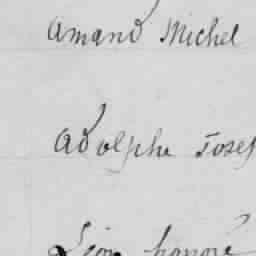 Amand Michel
Adolphe Josep
Léon honoré